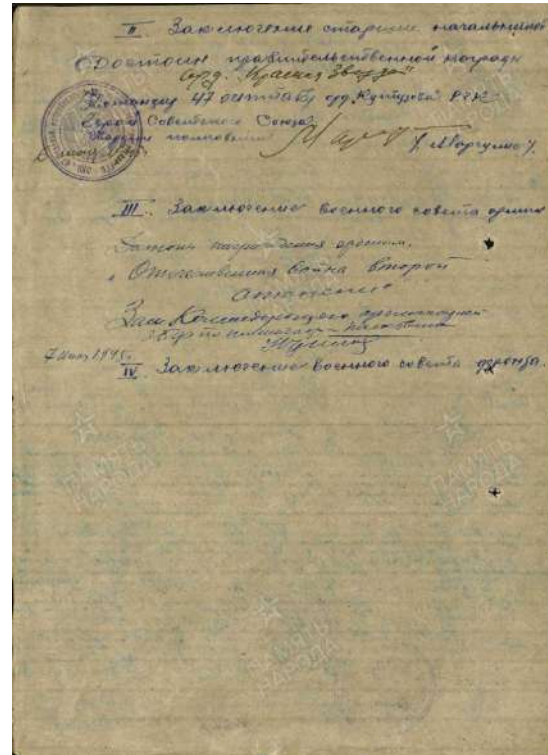 II Заключение старших начальников
Достоин правительственной награды
орд. "Красная Звезда"
Командир 47 оиптабр орд. Кутузова РГК
Герой Советского Союза
гвардии полковник
/Маргулис/.
III. Заключение военного совета армии
Достоин награждения орденом
"Отечественная война второй
степени"
Зам Командующего артиллерией
7 июня 1945г.
IV. Заключение военного совета фронта.
ПАМЯТЬ
НАРОДА